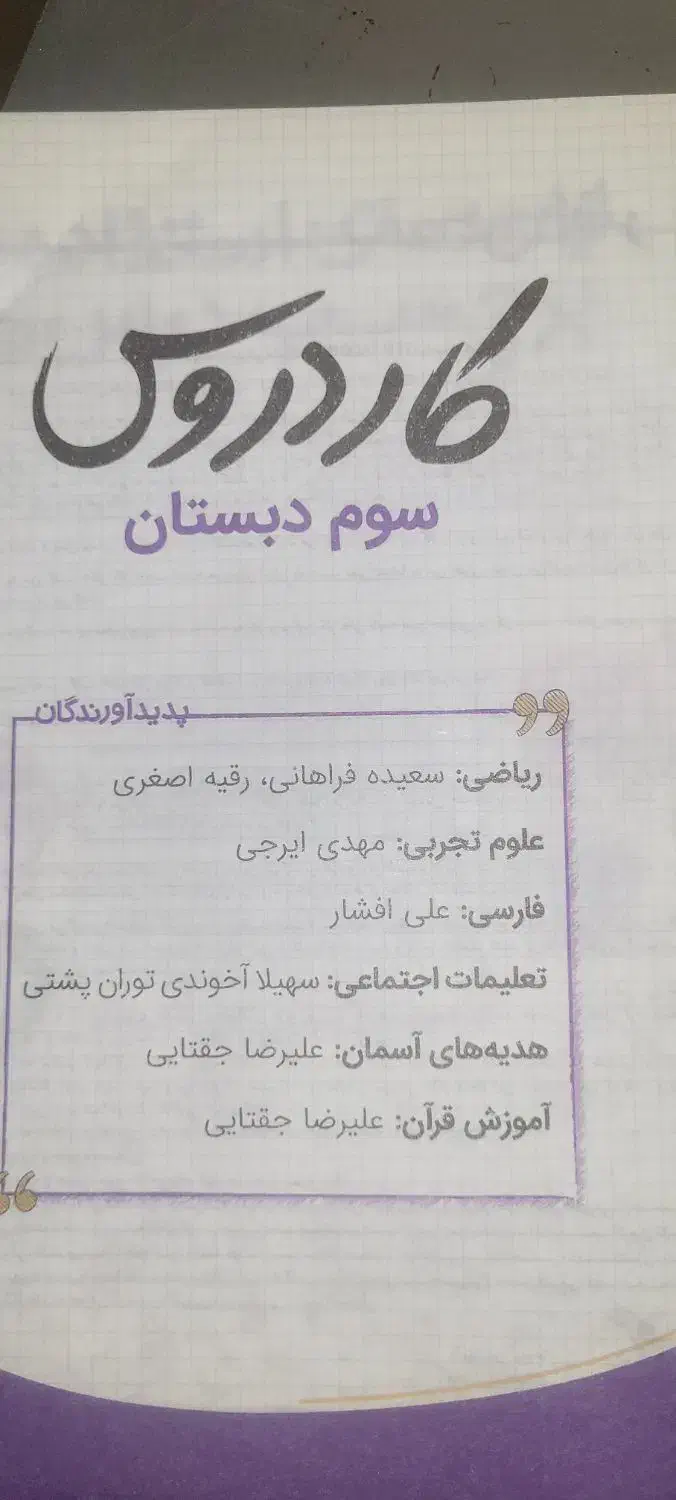 کار دروس
سوم دبستان
پدیدآورندگان
ریاضی: سعیده فراهانی، رقیه اصغری
علوم تجربی: مهدی ایرجی
فارسی: علی افشار
تعلیمات اجتماعی: سهیلا آخوندی توران پشتی
هدیه‌های آسمان: علیرضا جفتایی
آموزش قرآن: علیرضا جفتایی